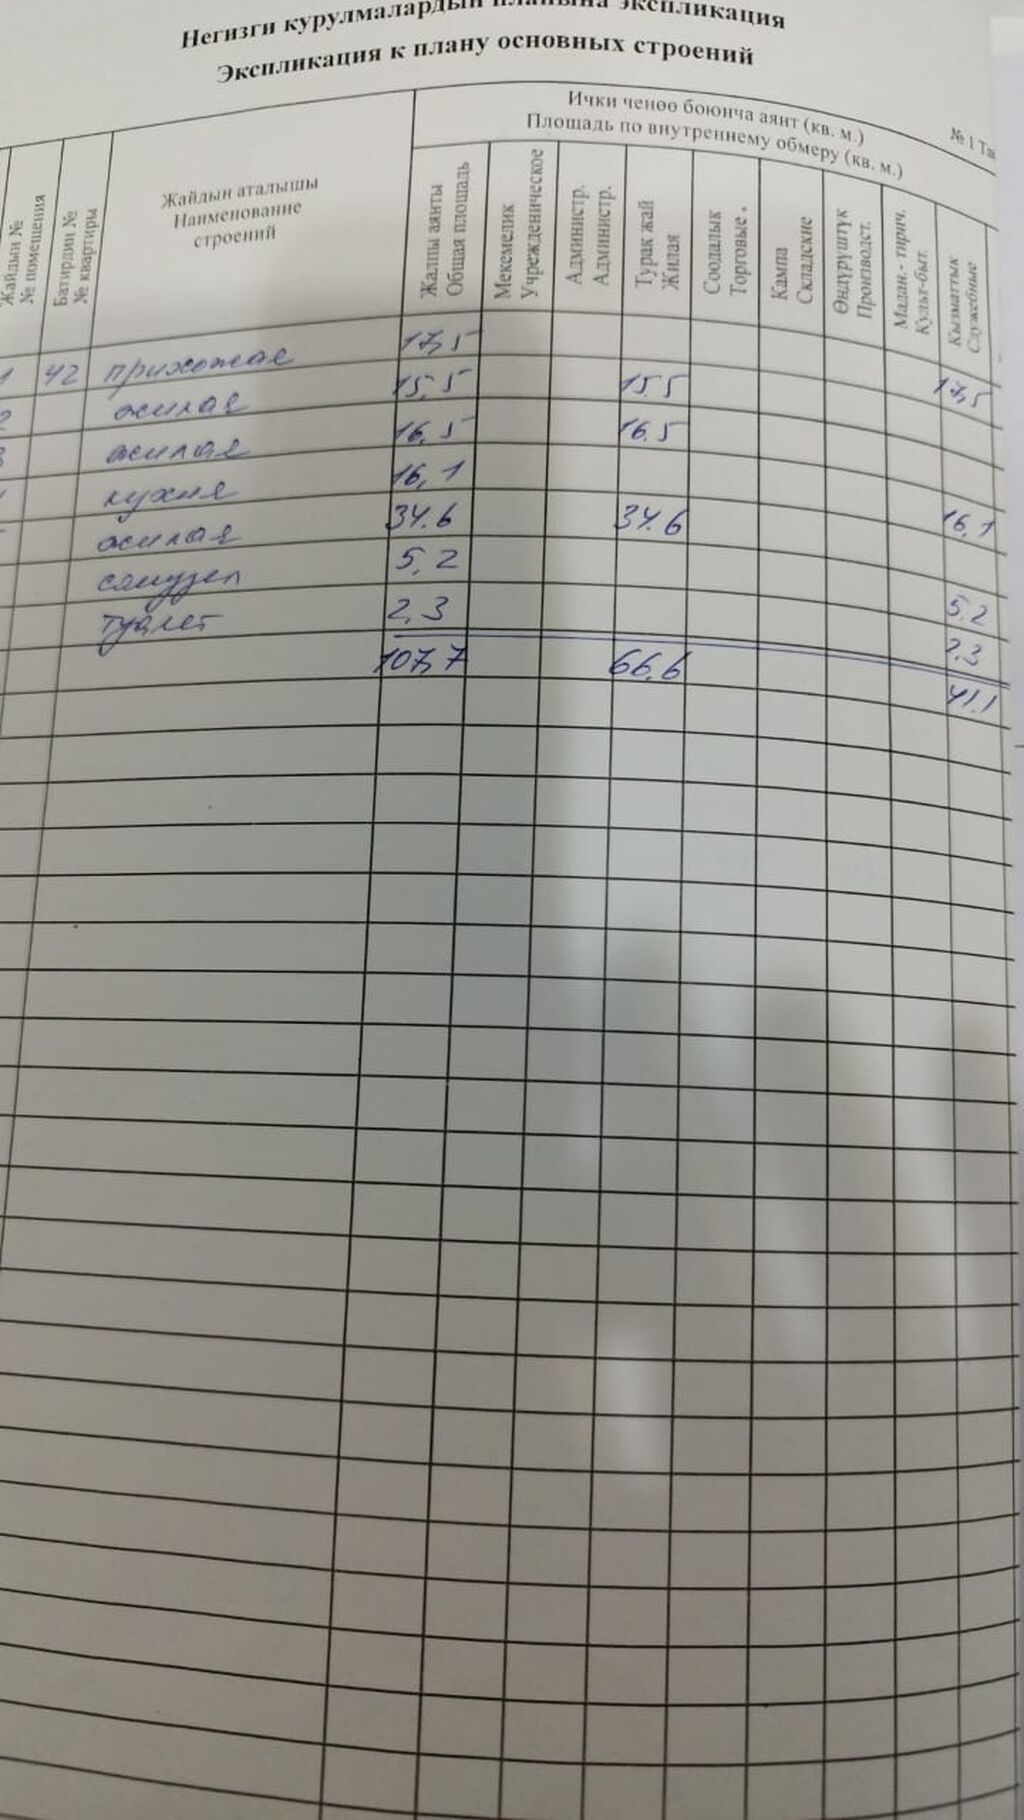 Негизги курулмалардын планына экспликация
Экспликация к плану основных строений
Ички ченөө боюнча аянт (кв. м.)
Площадь по внутреннему обмеру (кв. м.)
№ 1
Жайдын №
№ помещения
Батирдин №
№ квартиры
Жайдын аталышы
Наименование
строений
Жалпы аянты
Общая площадь
Мекемелик
Учрежденическое
Администр.
Администр.
Турак жай
Жилая
Соодалык
Торговые
Кампа
Складские
Өндүрүштүк
Производст.
Мадан.- тирич.
Культ-быт.
Кызматтык
Служебные
1 42 прихожая 17,5 17,5
2 жилая 15,5 15.5
3 жилая 16,5 16.5
кухня 16,1 16,1
жилая 34.6 34.6
санузел 5,2 5.2
туалет 2,3 2,3
107,7 66,6 41.1